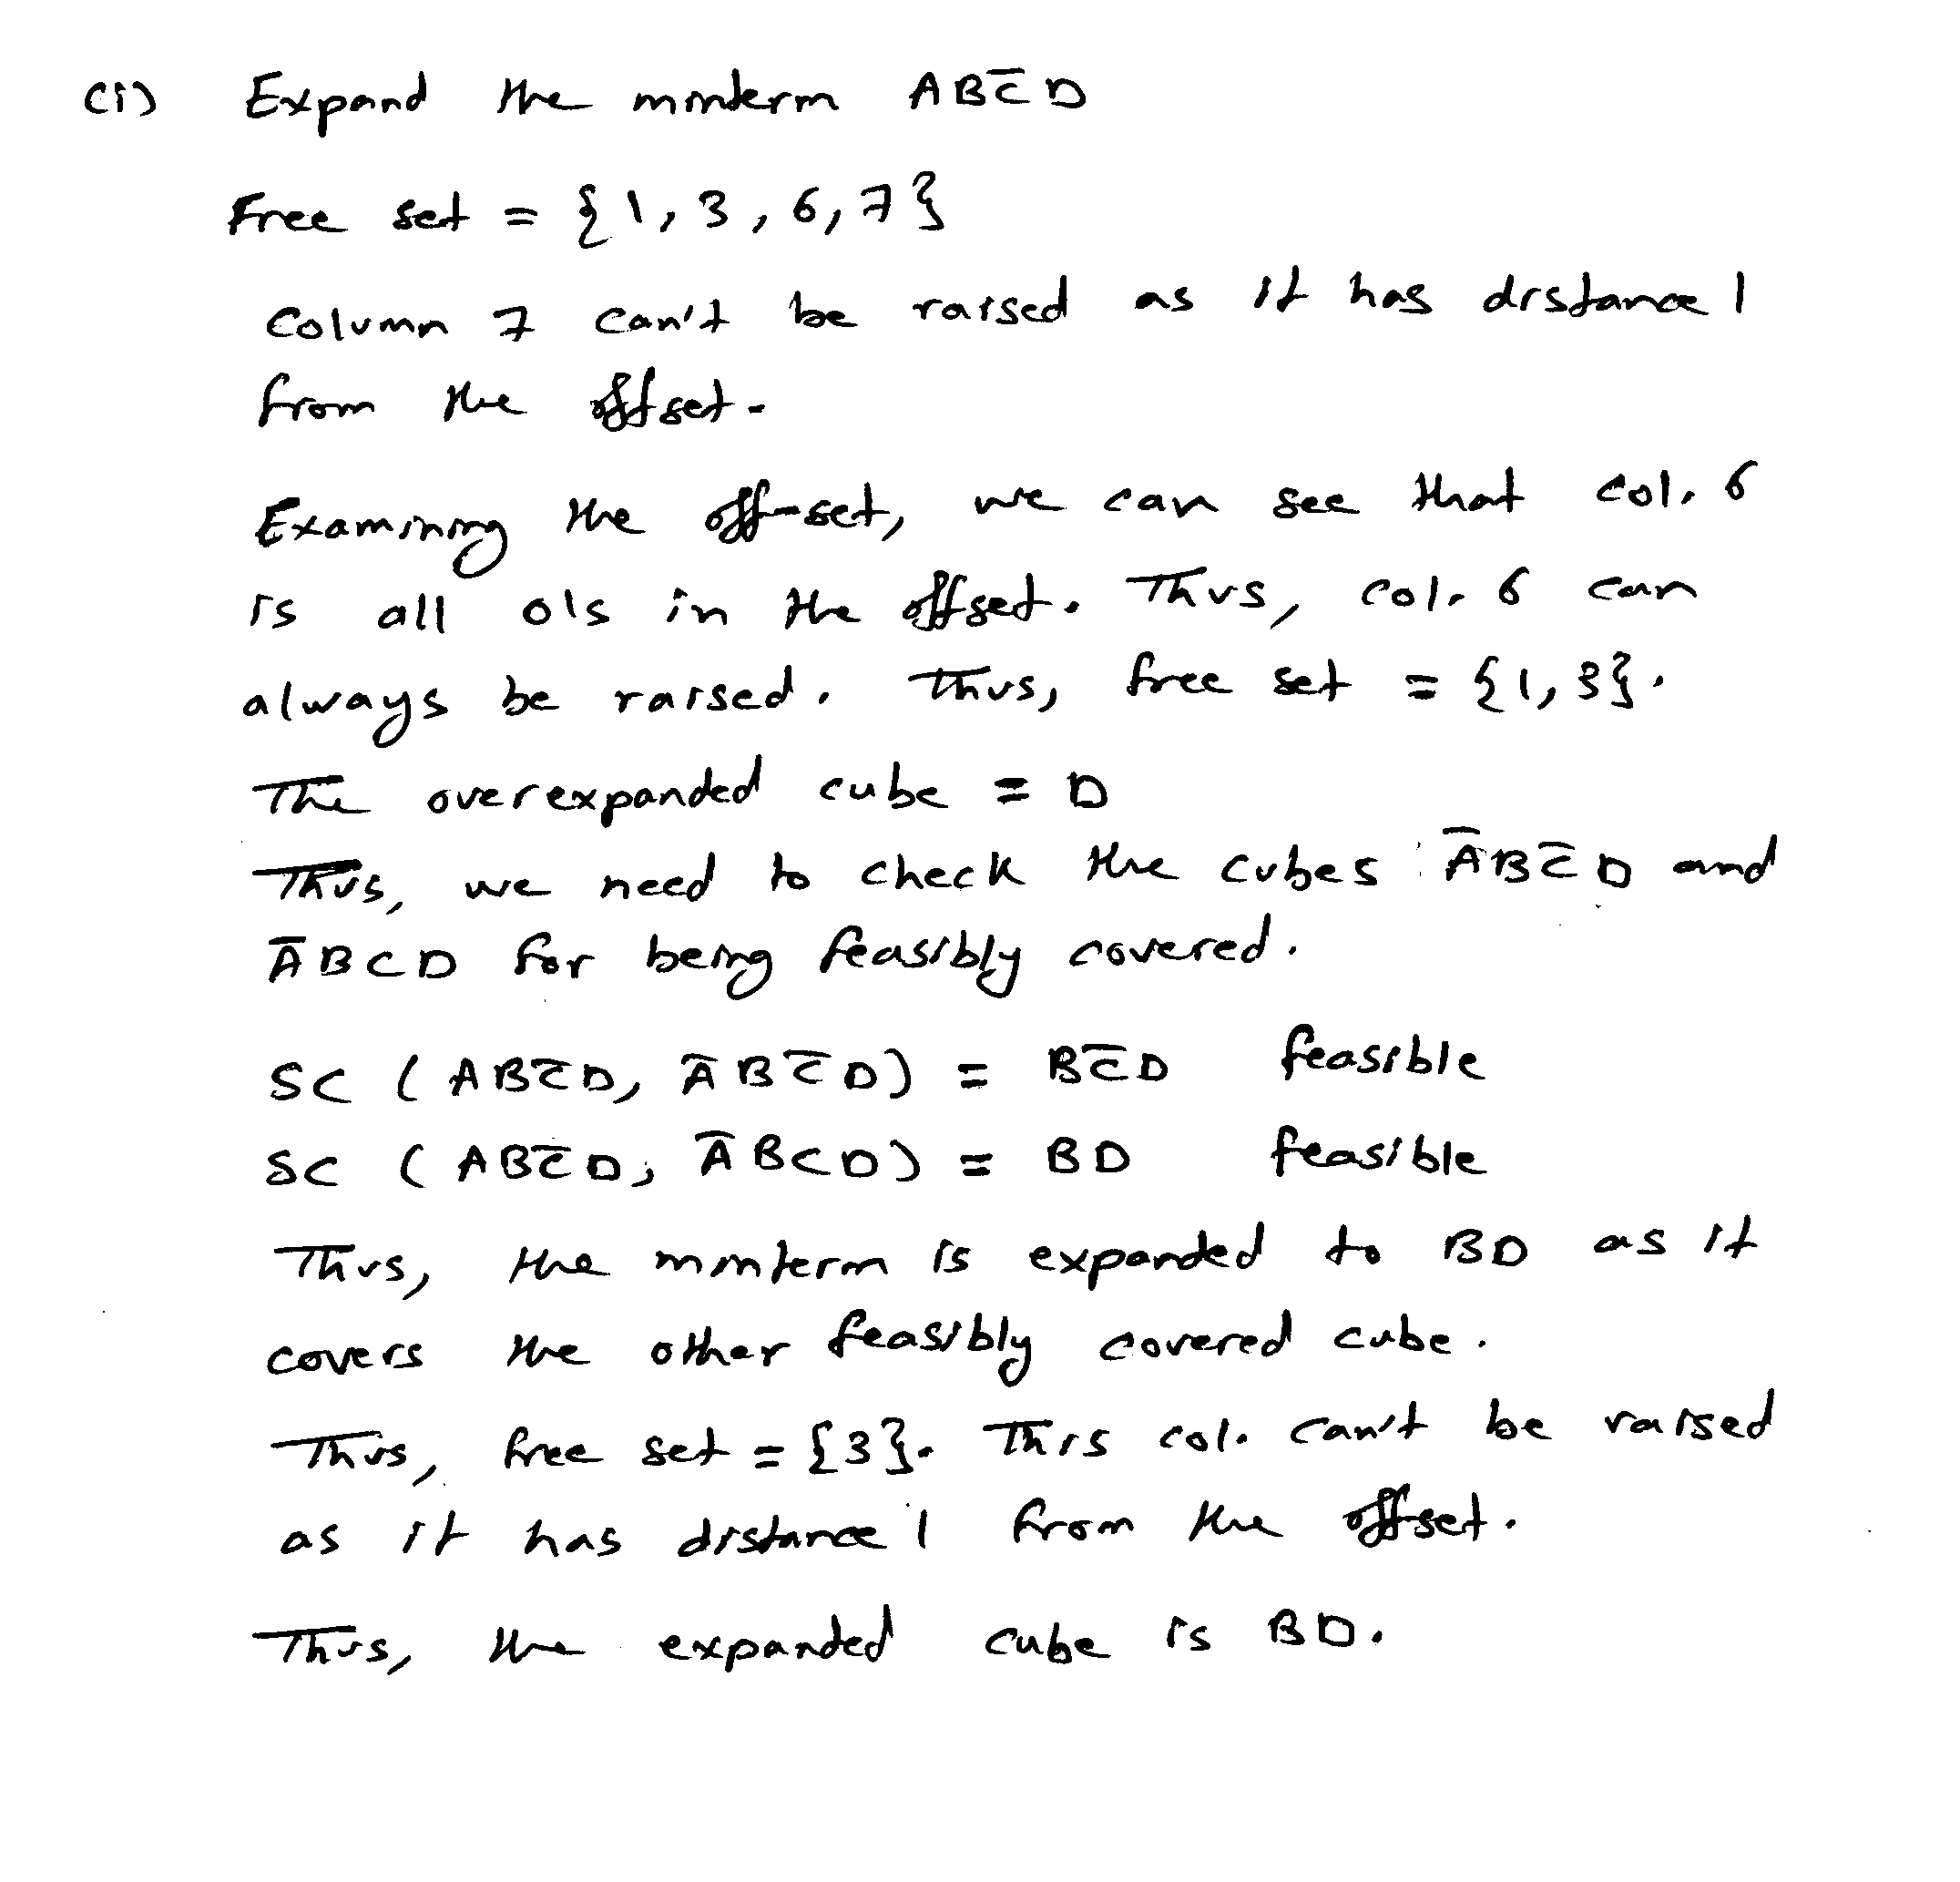 (i) Expand the minterm AB̅C̅D
Free set = {1, 3, 6, 7}
Column 7 can't be raised as it has distance 1
from the offset.
Examining the off-set, we can see that col. 6
is all 0's in the offset. Thus, col. 6 can
always be raised. Thus, free set = {1, 3}.
The overexpanded cube = D
Thus, we need to check the cubes A̅BC̅D and
A̅BCD for being feasibly covered.
SC (ABC̅D, A̅BC̅D) = BC̅D feasible
SC (ABC̅D, A̅BCD) = BD feasible
Thus, the minterm is expanded to BD as it
covers the other feasibly covered cube.
Thus, free set = {3}. This col. can't be raised
as it has distance 1 from the offset.
Thus, the expanded cube is BD.